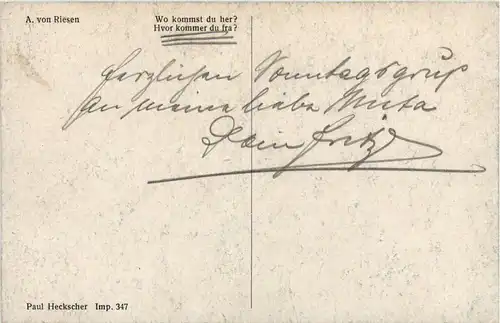 A. von Riesen
Wo kommst du her?
Hvor kommer du fra?
Herzlichen Sonntagsgruß
an meine liebe Muta
Dein Fritz
Paul Heckscher Imp. 347